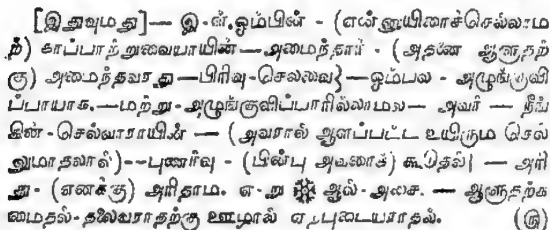 [இதுவுமது]— இ-ள். ஓம்பின் - (என்னுயிரைச்செல்லாம
ற்) காப்பாற்றுவையாயின்— அமைந்தார் - (அதனை ஆளுதற்
கு) அமைந்தவரது—பிரிவு-செலவை}—ஓம்பல - அழுங்குவி
ப்பாயாக.—மற்று-அழுங்குவிப்பாரில்லாமல— அவர் — நீங்
கின்-செல்வாராயின் — (அவரால் ஆளப்பட்ட உயிரும செல்
லுமாதலால்)--புணர்வு - (பின்பு அவரைக்) கூடுதல்| — அரி
து- (எனக்கு) அரிதாம. எ-று ❈ ஆல்-அசை. — ஆளுதற்க
மைதல்-தலைவராதற்கு ஊழால் ஏற்புடையராதல். (ரு)